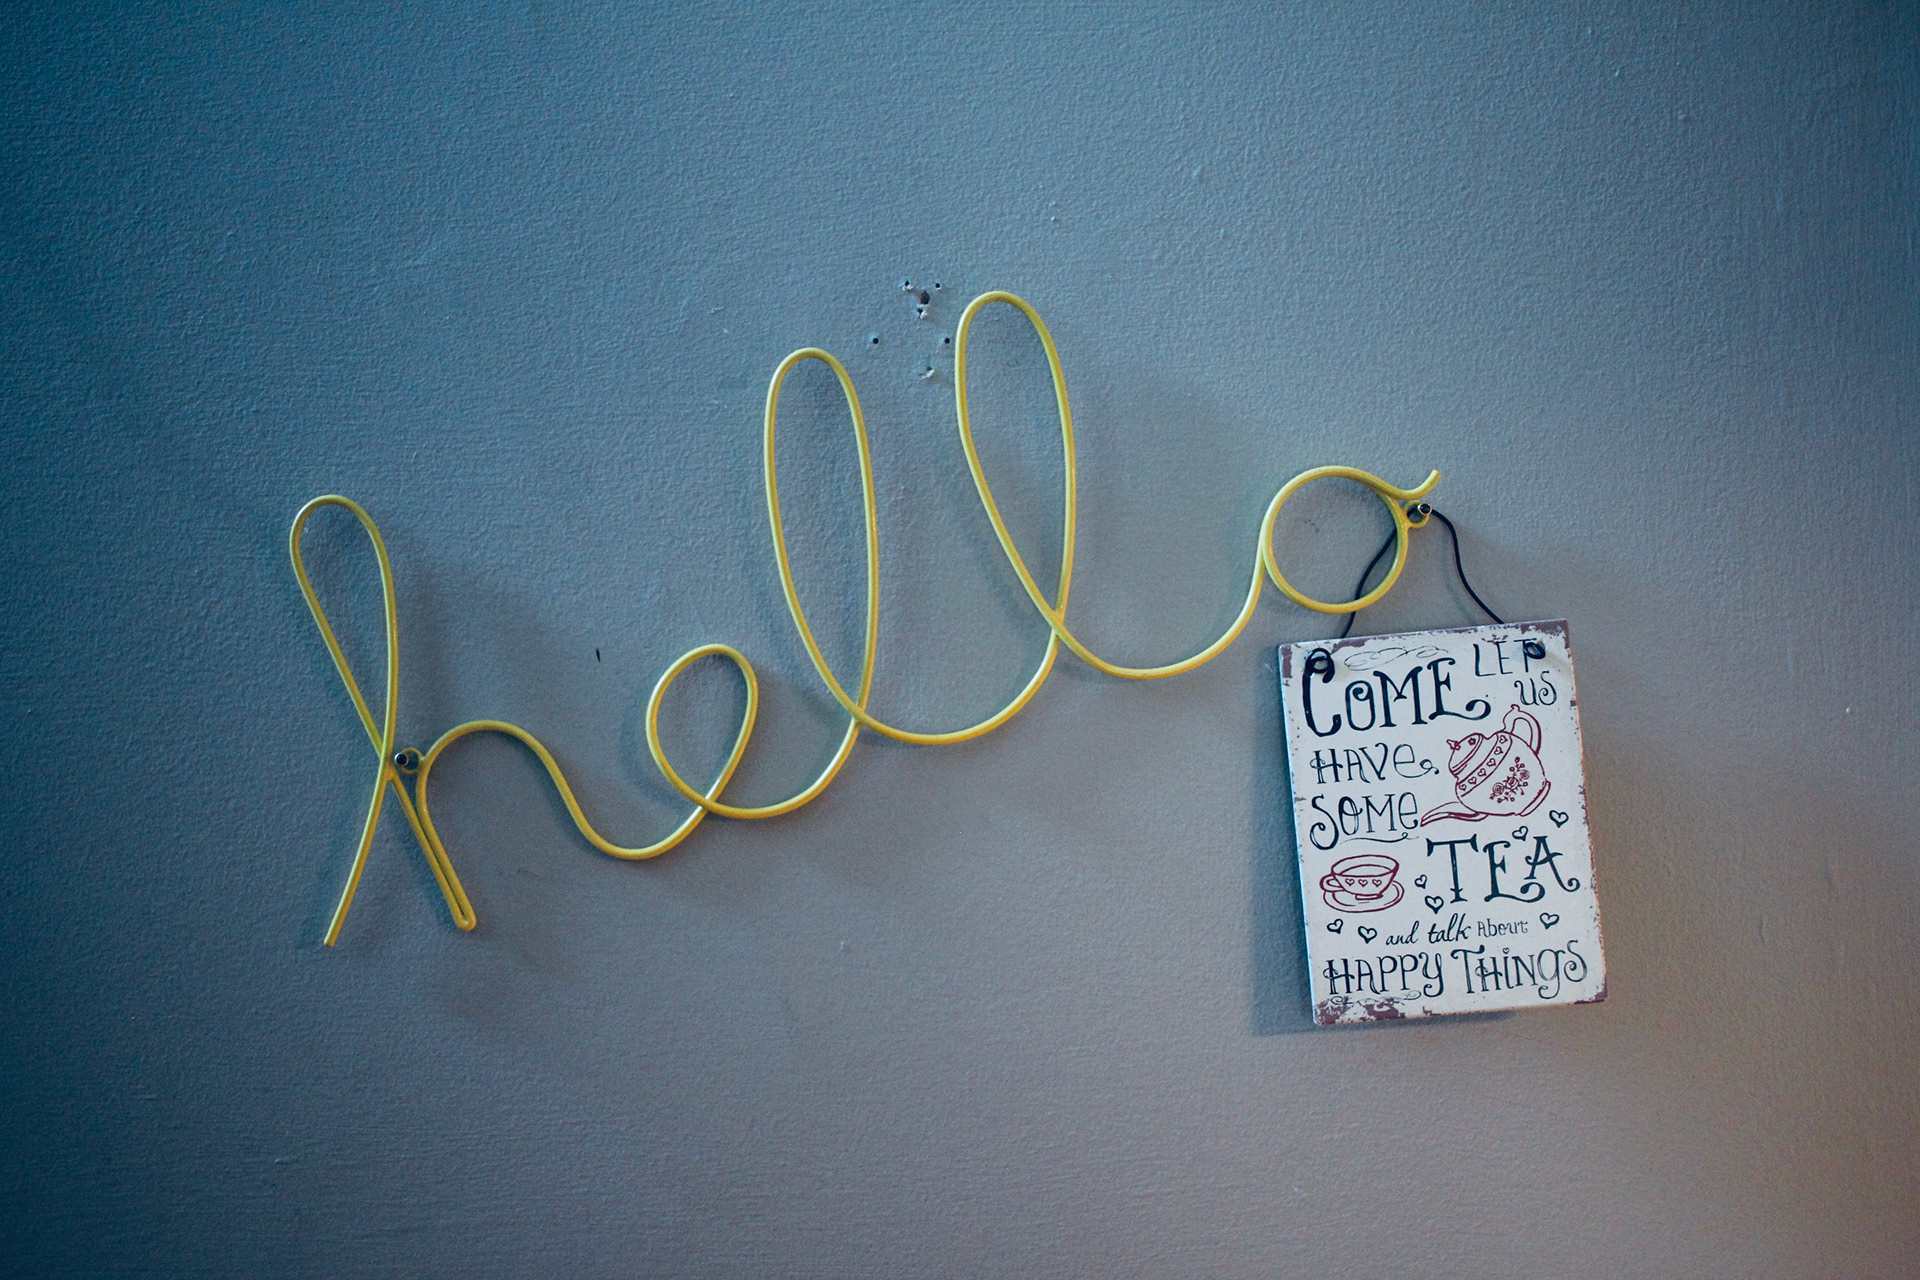 hello
COME LET US
HAVE
SOME
TEA
and talk About
HAPPY THiNgS